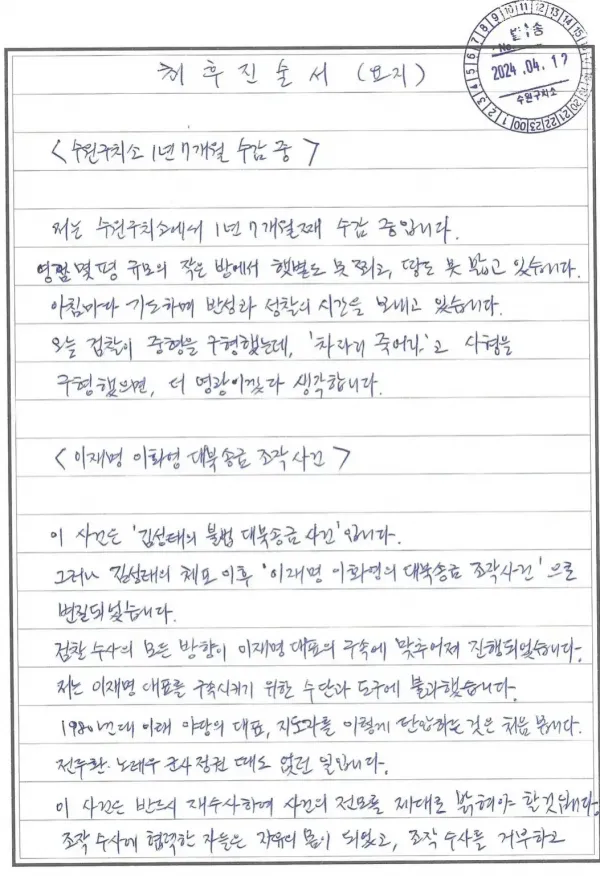 최후진술서 (요지)
발송
No.
2024.04.17
수원구치소
<수원구치소 1년 7개월 수감 중>
저는 수원구치소에서 1년 7개월째 수감 중입니다.
몇 평 규모의 작은 방에서 햇볕도 못 쬐고, 땅도 못 밟고 있습니다.
아침마다 기도하며 반성과 성찰의 시간을 보내고 있습니다.
오늘 검찰이 중형을 구형했는데, '차라리 죽어라'고 사형을
구형했으면, 더 영광이겠다 생각합니다.
<이재명 이화영 대북송금 조작사건>
이 사건은 '김성태의 불법 대북송금 사건'입니다.
그러나 김성태의 체포 이후 '이재명 이화영의 대북송금 조작사건'으로
변질되었습니다.
검찰 수사의 모든 방향이 이재명 대표의 구속에 맞추어져 진행되었습니다.
저는 이재명 대표를 구속시키기 위한 수단과 도구에 불과했습니다.
1980년대 이래 야당의 대표, 지도자를 이렇게 탄압하는 것은 처음 봅니다.
전두환·노태우 군사정권 때도 없던 일입니다.
이 사건은 반드시 재수사하여 사건의 전모를 제대로 밝혀야 할 것입니다.
조작 수사에 협력한 자들은 자유의 몸이 되었고, 조작 수사를 거부하고